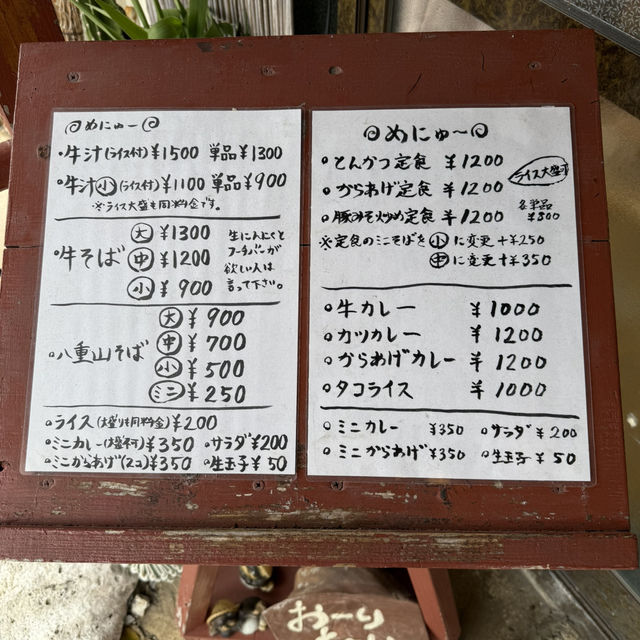 めにゅー
・牛汁(ライス付)¥1500 単品¥1300
・牛汁小(ライス付)¥1100 単品¥900
※ライス大盛も同料金です。
・牛そば
大 ¥1300
中 ¥1200
小 ¥900
生にんにくと
フーチバーが
欲しい人は
言って下さい。
・八重山そば
大 ¥900
中 ¥700
小 ¥500
ミニ ¥250
・ライス(大盛り同料金)¥200
・ミニカレー(大盛不可)¥350 ・サラダ¥200
・ミニからあげ(2コ)¥350 ・生玉子¥50
めにゅ〜
・とんかつ定食 ¥1200
・からあげ定食 ¥1200
・豚みそ炒め定食 ¥1200
ライス大盛可
各単品
¥800
※定食のミニそばを小に変更+¥250
中に変更+¥350
・牛カレー ¥1000
・カツカレー ¥1200
・からあげカレー ¥1200
・タコライス ¥1000
・ミニカレー ¥350 ・サラダ¥200
・ミニからあげ¥350 ・生玉子¥50
おーり